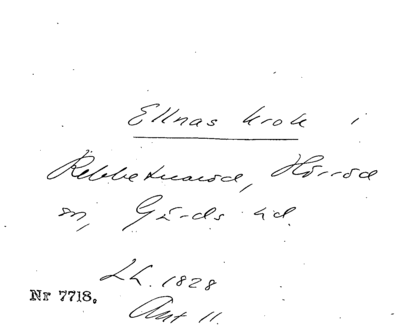 Ellnas krok i
Rebbetuaröd, Hörröd
sn, Gärds hd.
LL. 1828
Nr 7718.
Akt 11.